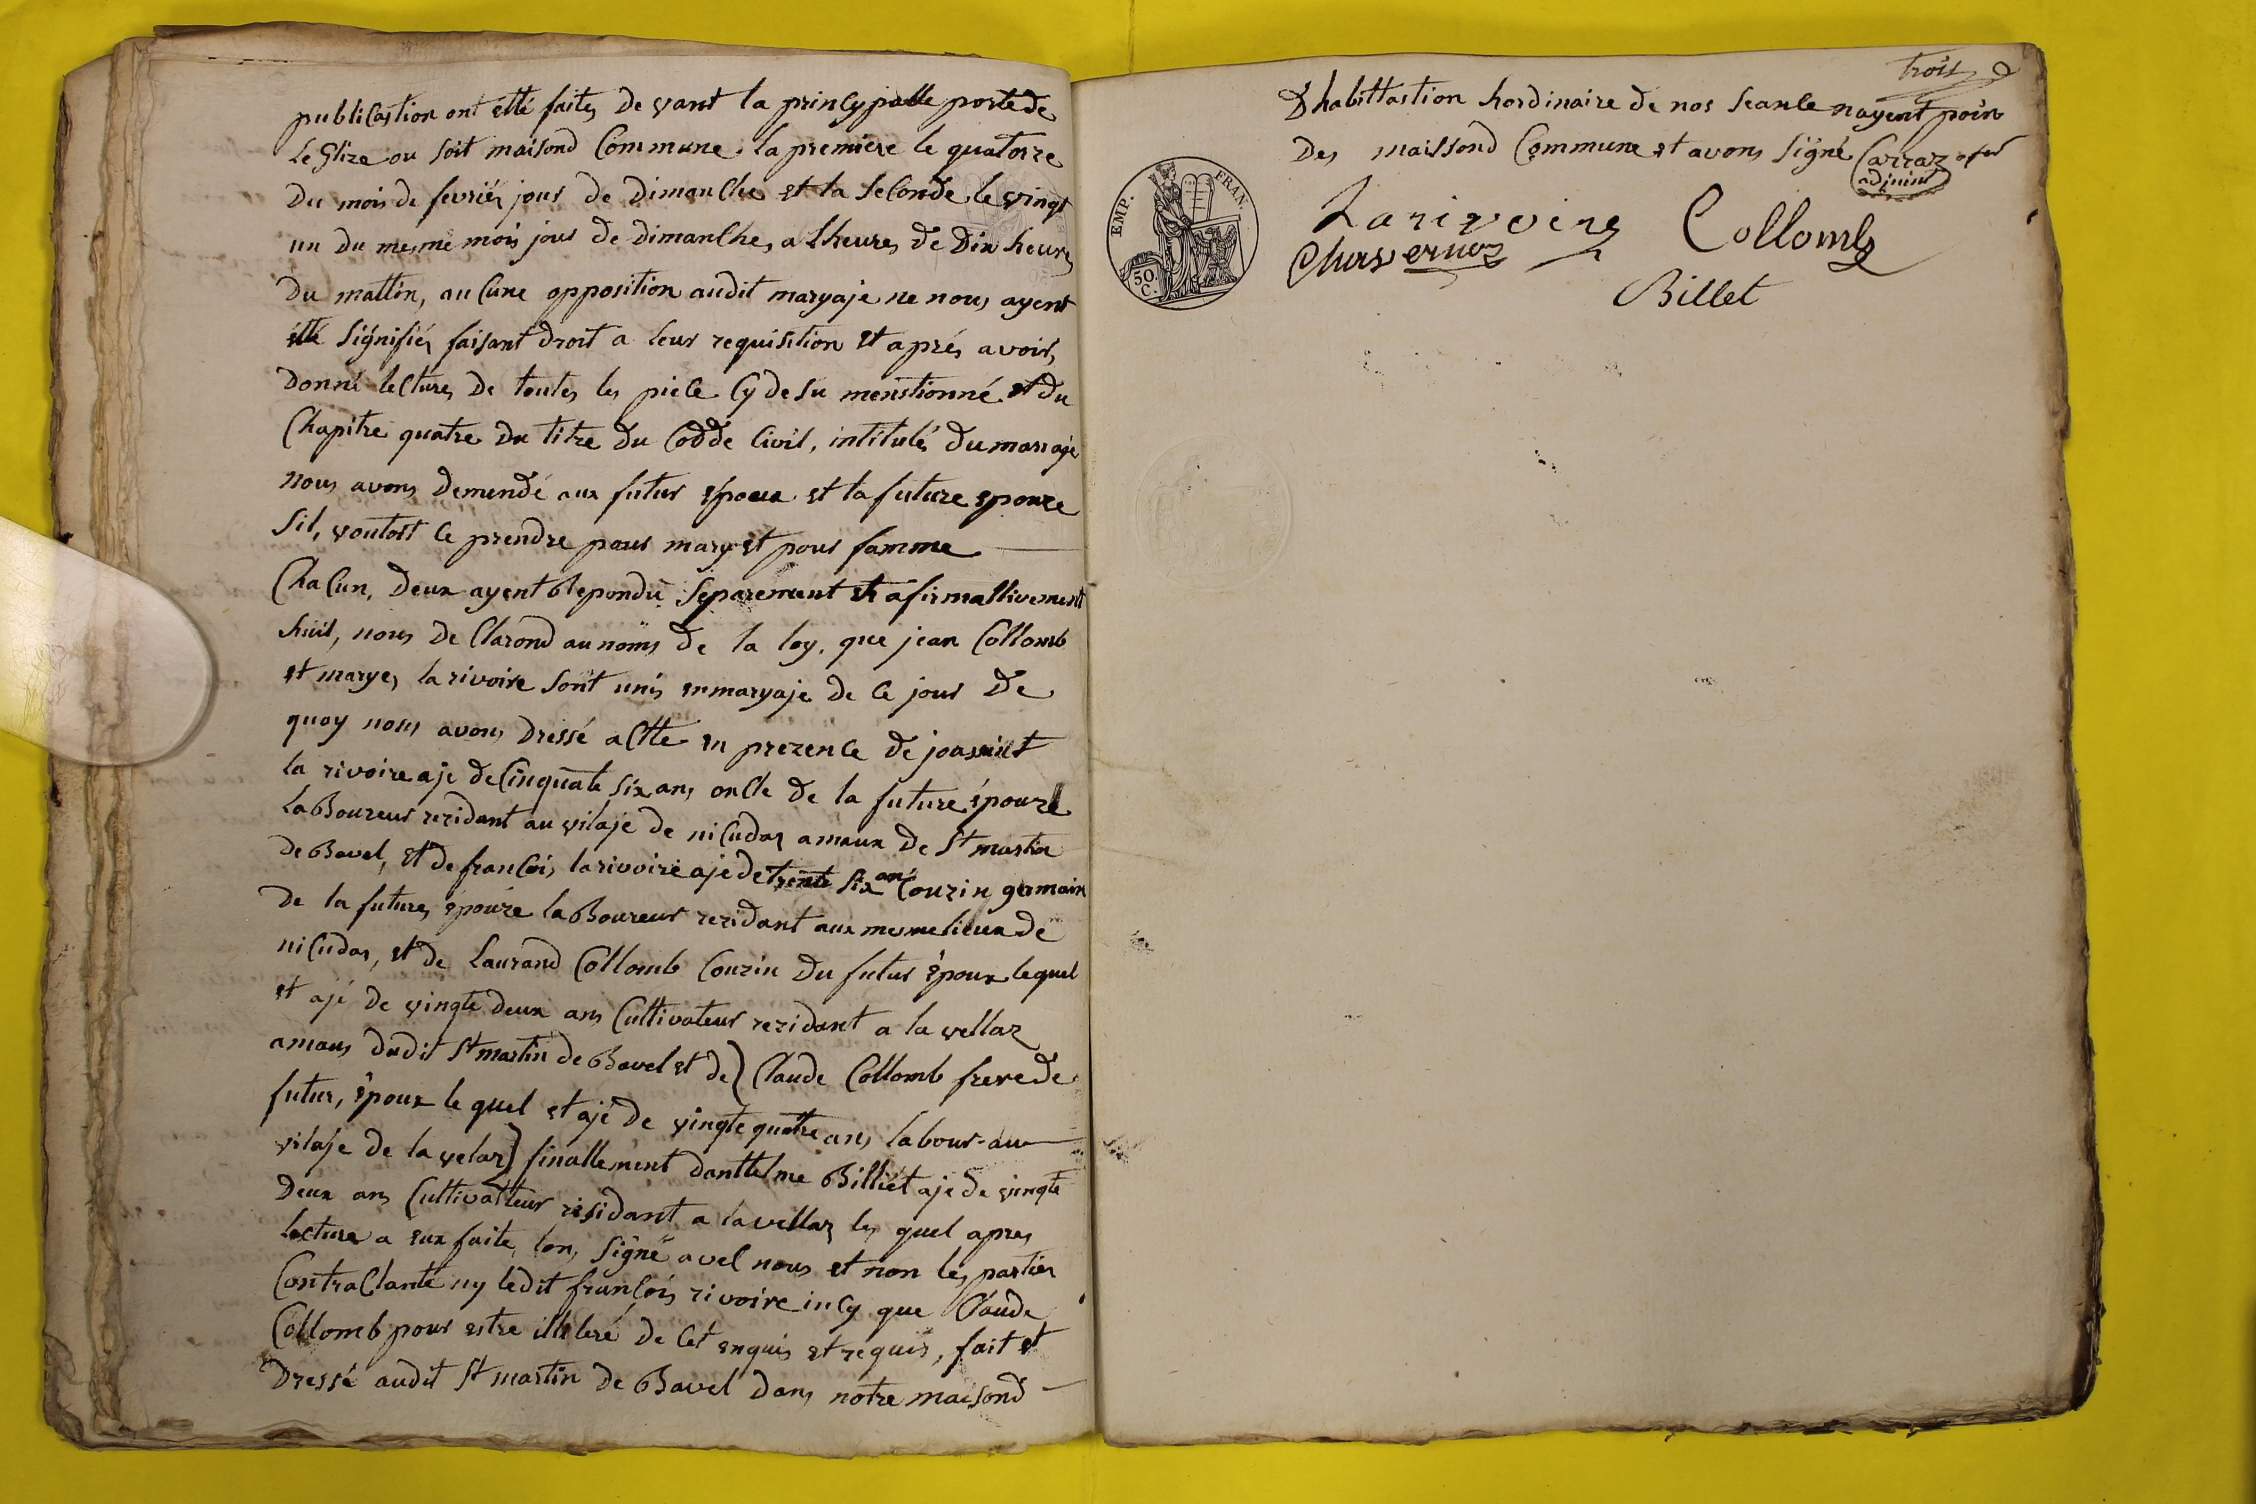 publicastion ont étté faites de vant la princypalle porte de
Leglize ou soit maisond Commune. la premiere le quatorze
du mois de fevriér jour de dimanche et la seconde le vingt
un du mesme mois jour de dimanche, a Lheures de dix heures
du mattin, aucune opposition audit maryaje ne nous ayent
étté signifiés faisant droit a leur requisition et aprés avoir,
donné lectures de toutes les piece cy desu menstionné et du
Chapitre quatre du titre du Codde Civil, intitulés du mariaje
nous avons demendé aux futur époux et la future epouze
sil, vouloit ce prendre pour mary et pour famme
Chacun, deux ayent Repondu séparement et afirmattivement
huit, nous de Clarond au noms de la loy, que jean Collomb
et marye, larivoire sont unis en maryaje de ce jour de
quoy nous avons dressé actte en prezence de
la rivoire aje de Cinquate six ans oncle de la future épouze
laBoureur rezidant au vilaje de nicudas amaux de St martin
de Bavel, et de francois larivoire aje de trente six ans Couzin germain
de la future, épouze laBoureur rezidant aux mesme lieux de
nicudas, et de Laurand Collomb Couzin du futur époux lequel
et ajé de vingte deux ans Cultivateur rezidant a la vellaz
amaus dudit St martin de Bavel et de) Claude Collomb frere de
futur, époux le quel et ajé de vingte quatre ans labour au
vilaje de la velaz) finallement danttelme Billiét aje de vingte
deux ans Cultivatteur residant a la vellaz les quel apres
lecture a eux faite, lon, signé avec nous et non les parties
Contractante ny ledit francois rivoire incy que Claude
Collomb pour estre illiteré de cet enquis et requis, fait et
dressé audit St martin de Bavel dans notre maisond
trois
Dhabittastion hordinaire de nos seance nayent poin
des maissond Commune et avons signé Carraz
adjoint
EMP. FRAN.
50 C.
Larivoire Collomb
Billet